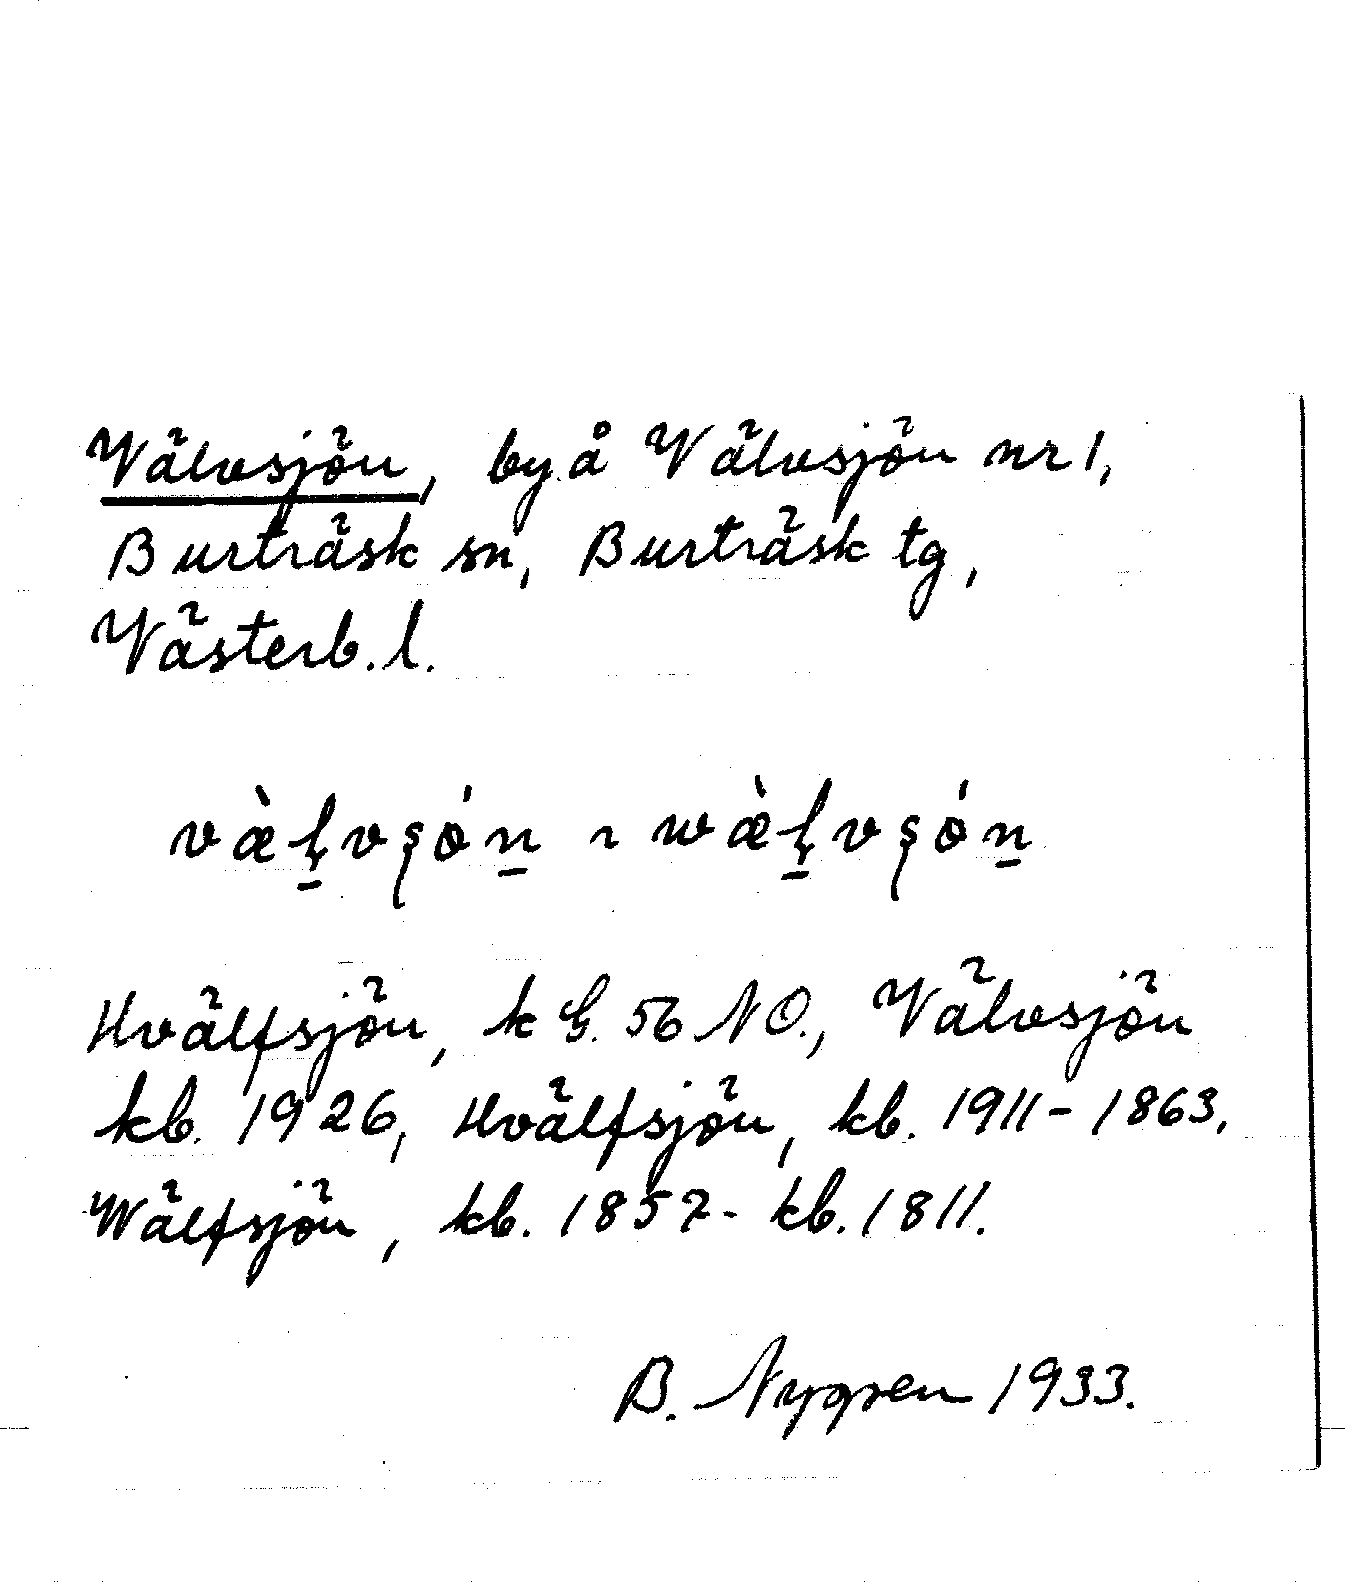 Välvsjön, by å Välvsjön nr 1,
Burträsk sn, Burträsk tg,
Västerb. l.
Hvälfsjön, k G. 56 NO., Välvsjön
kb. 1926, Hvälfsjön, kb. 1911-1863,
Wälfsjön, kb. 1857- kb. 1811.
B. Nygren 1933.